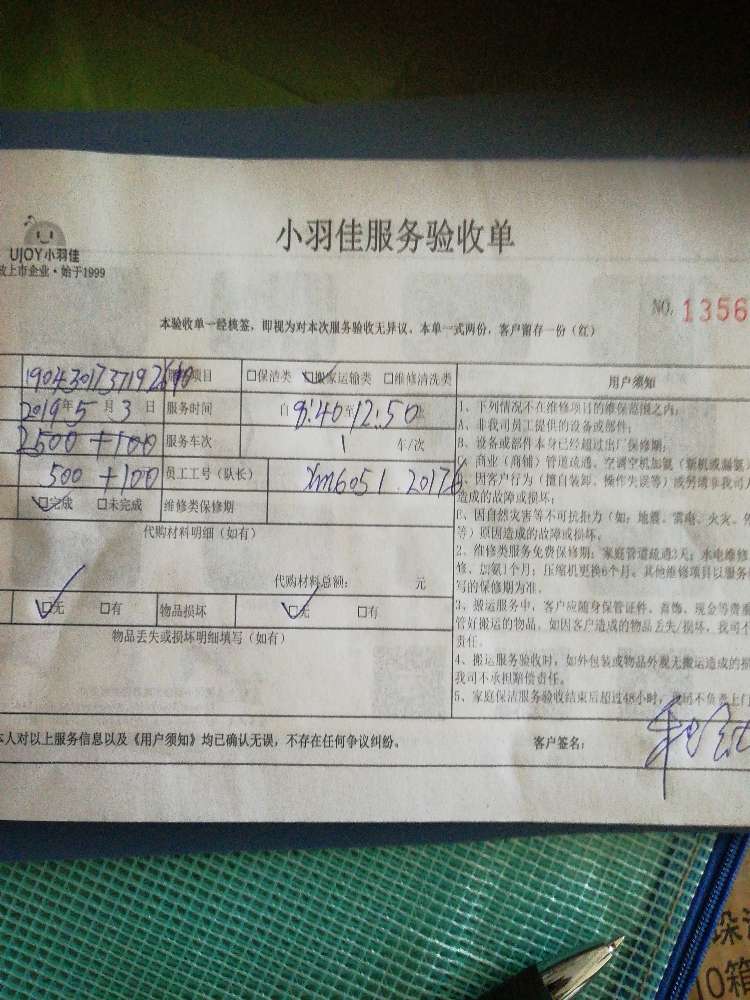 小羽佳服务验收单
UJOY小羽佳
上市企业·始于1999
NO. 1356
本验收单一经核签，即视为对本次服务验收无异议。本单一式两份，客户留存一份（红）
项目 □保洁类 □搬家运输类 □维修清洗类 用户须知
2019年5月3日 服务时间 自8:40至12:50
2500+100 服务车次 1 车/次
500+100 员工工号（队长） xm6051.20176
□完成 □未完成 维修类保修期
代购材料明细（如有）
代购材料总额： 元
□无 □有 物品损坏 □无 □有
物品丢失或损坏明细填写（如有）
1、下列情况不在维修项目的维保范围之内：
A、非我司员工提供的设备或部件；
B、设备或部件本身已经超过出厂保修期；
商业（商铺）管道疏通、空调空机加氨（新机或漏氨
因客户行为（擅自装卸、操作失误等）或另请非我司人
造成的故障或损坏；
E、因自然灾害等不可抗拒力（如：地震、雷电、火灾、
等）原因造成的故障或损坏。
2、维修类服务免费保修期：家庭管道疏通3天；水电维修
修、加氨1个月；压缩机更换6个月。其他维修项目以服务
写的保修期为准。
3、搬运服务中，客户应随身保管证件、首饰、现金等贵重
管好搬运的物品。如因客户造成的物品丢失/损坏，我司不
责任。
4、搬运服务验收时，如外包装或物品外观无搬运造成的损
我司不承担赔偿责任。
5、家庭保洁服务验收结束后超过48小时，我司不负责上门
本人对以上服务信息以及《用户须知》均已确认无误，不存在任何争议纠纷。 客户签名：
10箱